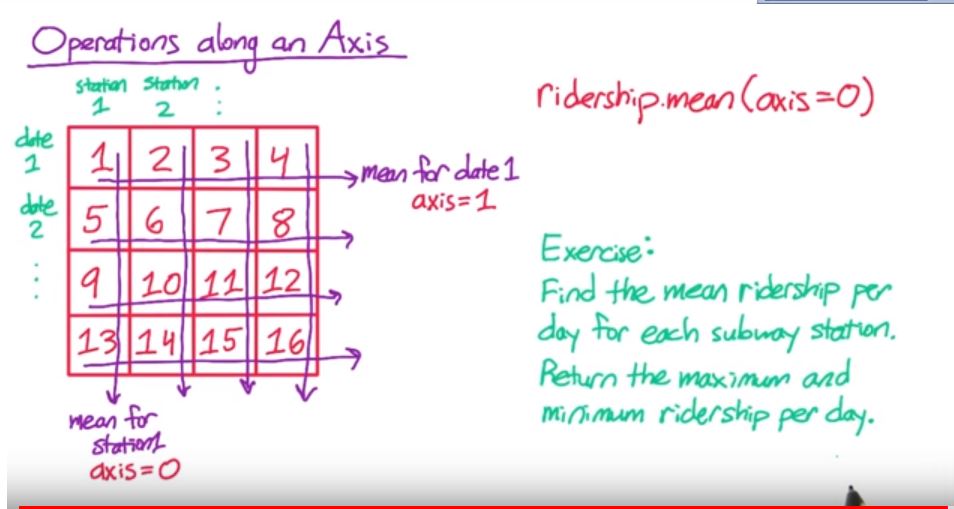 Operations along an Axis
station station :
1 2
date 1
1 2 3 4
mean for date 1
axis=1
date 2
5 6 7 8
:
9 10 11 12
13 14 15 16
mean for
station1
axis=0
ridership.mean(axis=0)
Exercise:
Find the mean ridership per
day for each subway station.
Return the maximum and
minimum ridership per day.